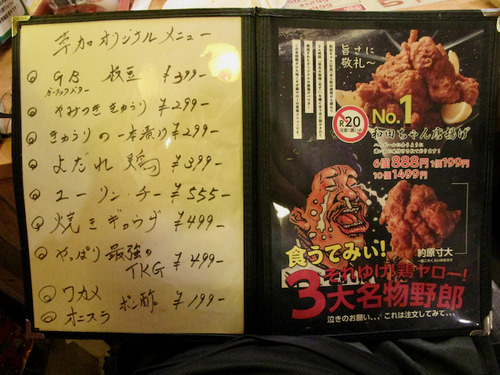 幸加オリジナルメニュー
GB 枝豆 ¥399-
ガーリックバター
やみつききゅうり ¥299-
きゅうりの一本漬け ¥299-
よだれ鶏 ¥399-
ユーリンチー ¥555-
焼きギョウザ ¥499-
やっぱり最強の
TKG ¥499-
ワカメ
オニスラ ポン酢 ¥199-
旨さに
敬礼〜
R20
No.1
和田ちゃん唐揚げ
6個888円 1個199円
10個1499円
食うてみい!
約原寸大
それゆけ!鶏ヤロー!
3大名物野郎
泣きのお願い、、、これは注文してみて、、、